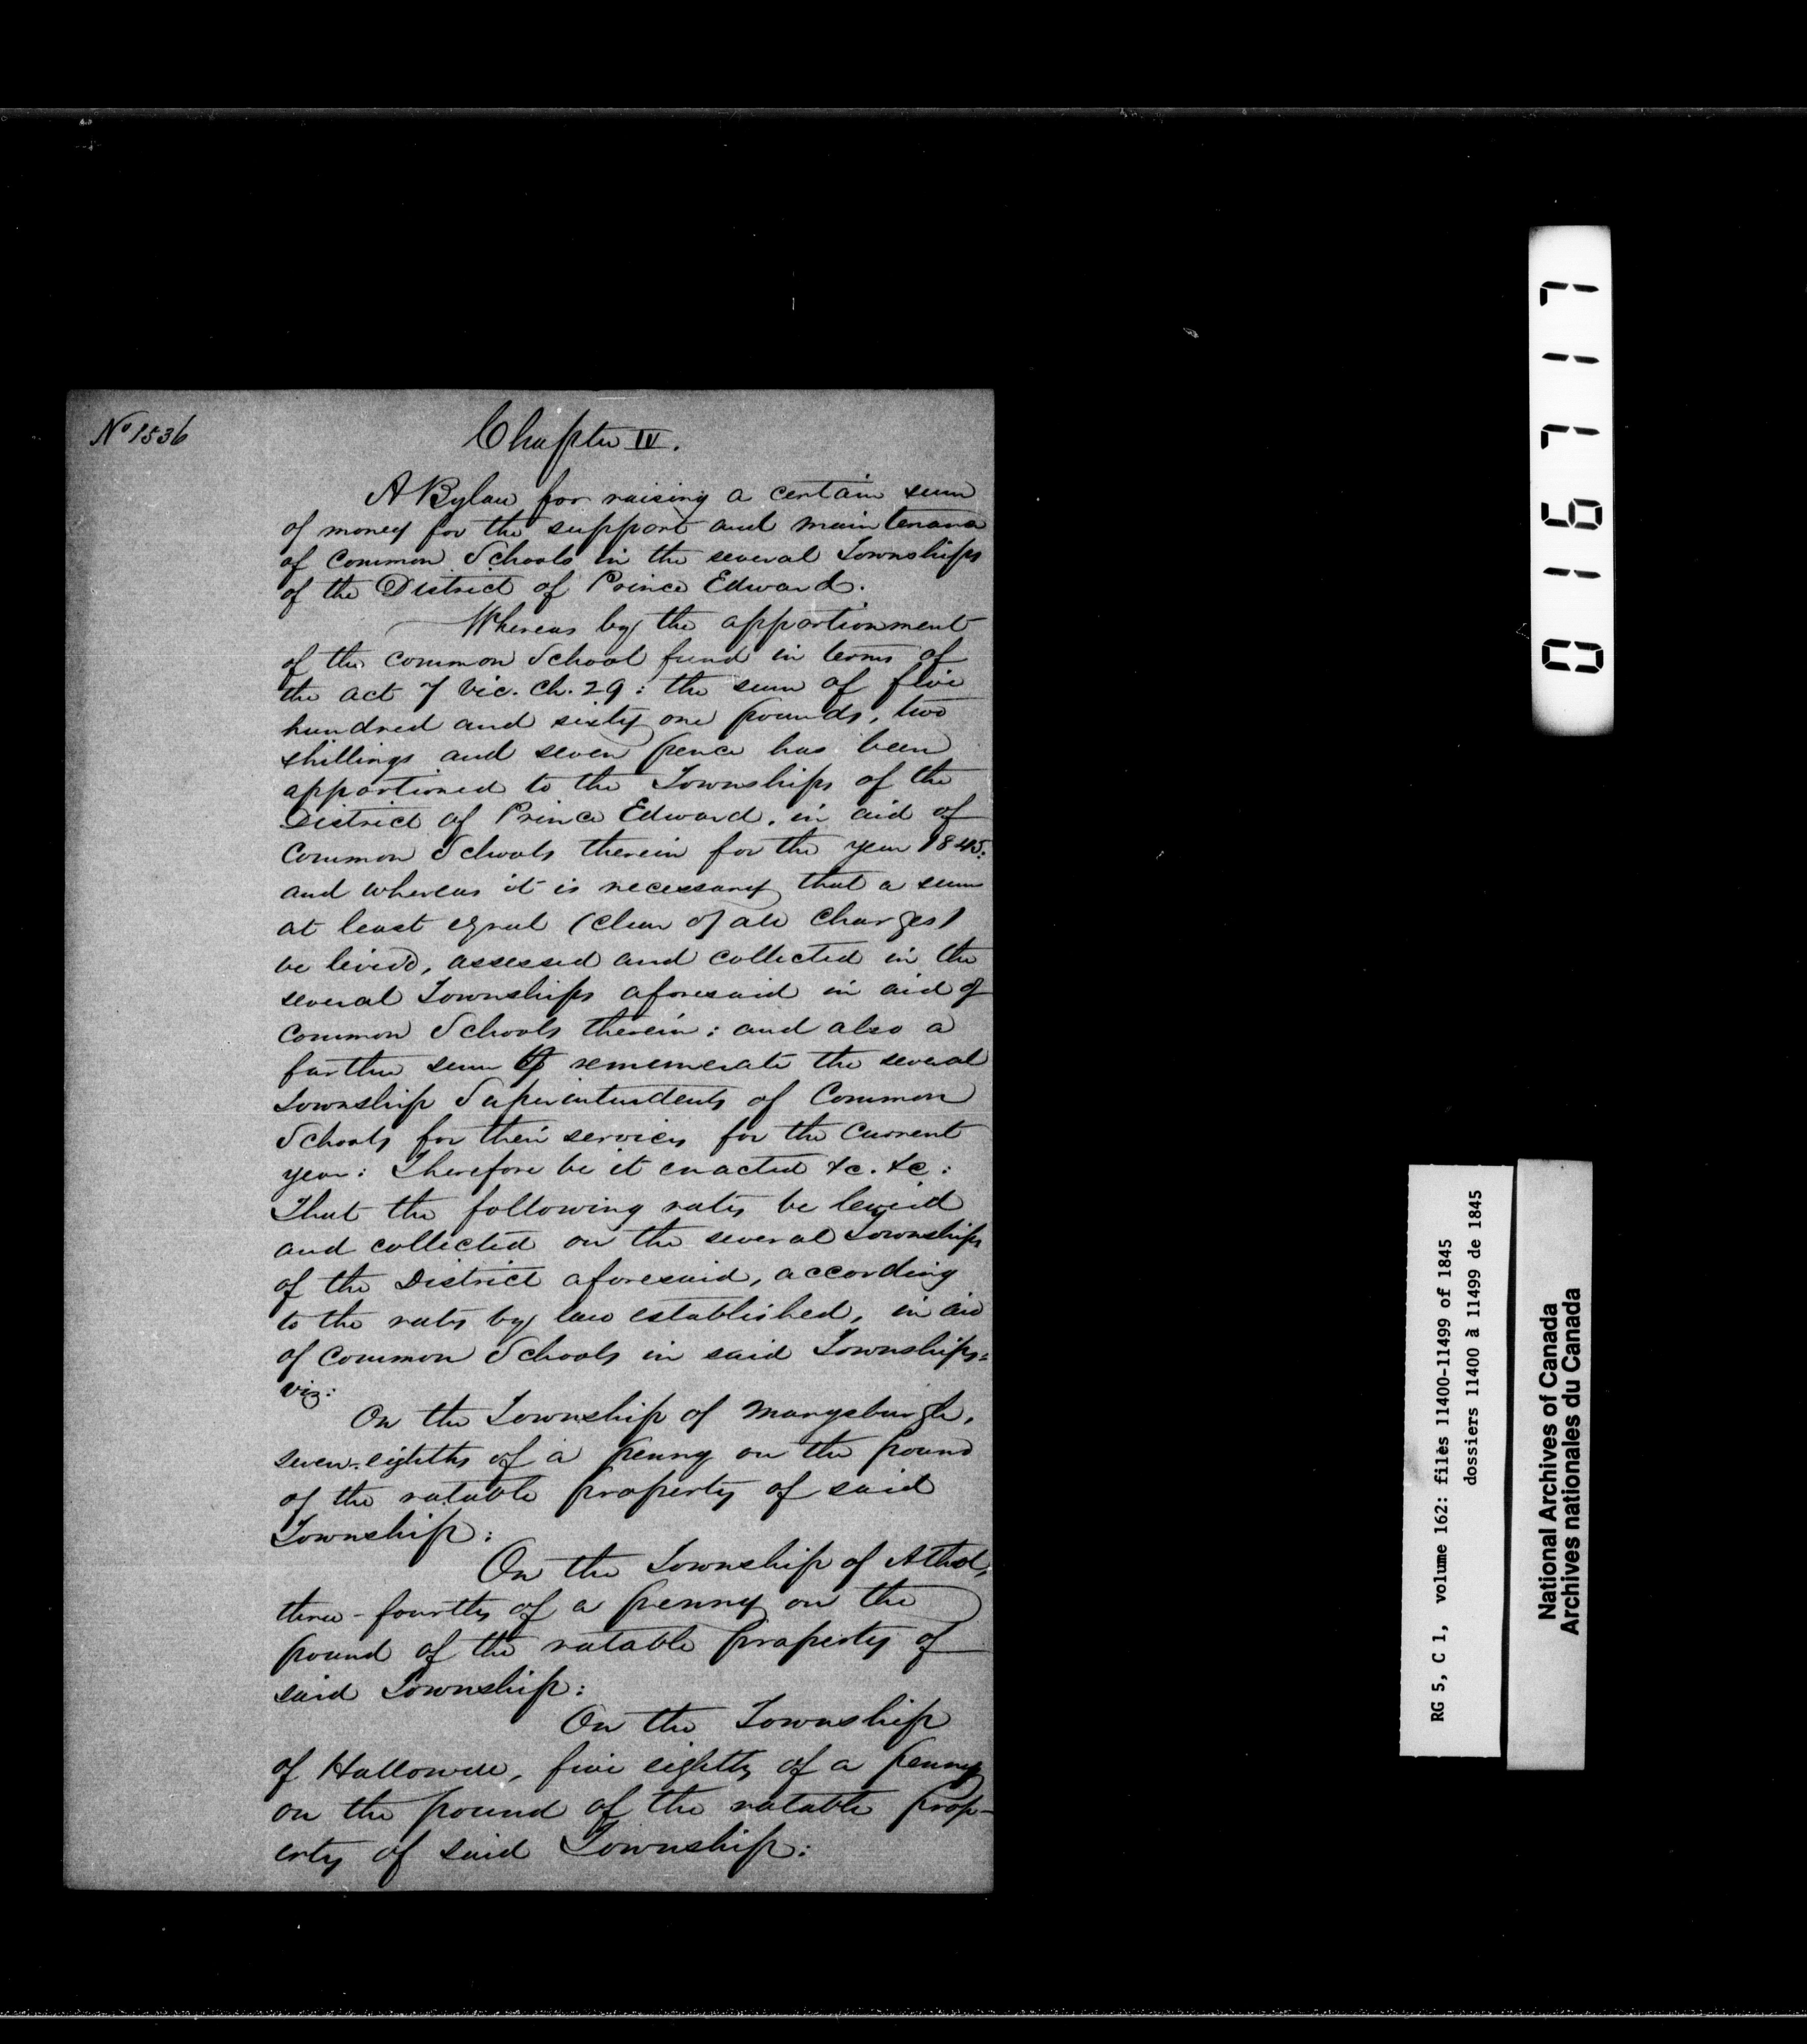 No 1536
Chapter IV.
A Bylaw for raising a certain sum
of money for the support and maintenance
of Common Schools in the several Townships
of the District of Prince Edward.
Whereas by the apportionment
of the common School fund in terms of
the act 7 Vic. Ch. 29: the sum of five
hundred and sixty one pounds, two
shillings and seven pence has been
apportioned to the Townships of the
District of Prince Edward, in aid of
Common Schools therein for the year 1845:
and whereas it is necessary that a sum
at least equal (clear of all charges)
be levied, assessed and collected in the
several Townships aforesaid in aid of
Common Schools therein: and also a
further sum to remunerate the several
Township Superintendents of Common
Schools for their services for the current
year: Therefore be it enacted &c. &c:
That the following rates be levied
and collected on the several Townships
of the District aforesaid, according
to the rates by law established, in aid
of Common Schools in said Townships:
viz:
On the Township of Marysburgh,
seven-eighths of a penny on the pound
of the ratable property of said
Township:
On the Township of Athol,
three-fourths of a penny on the
pound of the ratable property of
said Township:
On the Township
of Hallowell, five eighths of a penny
on the pound of the ratable prop-
erty of said Township:
016717
RG 5, C 1, volume 162: files 11400-11499 of 1845
dossiers 11400 à 11499 de 1845
National Archives of Canada
Archives nationales du Canada